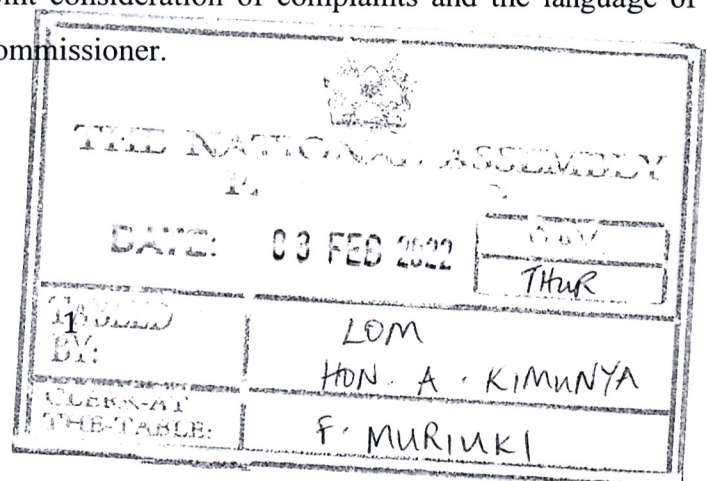 oint consideration of complaints and the language of
ommissioner.
THE NATIONAL ASSEMBLY
DATE: 03 FEB 2022
THUR
1
TABLED LOM
BY: HON. A. KIMUNYA
CLERK-AT
THE-TABLE: F. MURIUKI